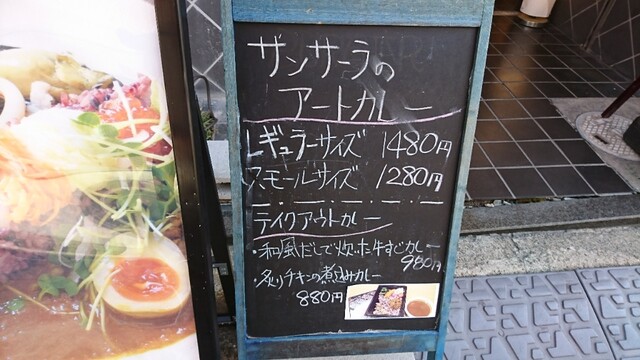 ザンサーラの
アートカレー
レギュラーサイズ 1480円
スモールサイズ 1280円
テイクアウトカレー
・和風だしで炊いた牛すじカレー
980円
・炙りチキンの煮込みカレー
880円